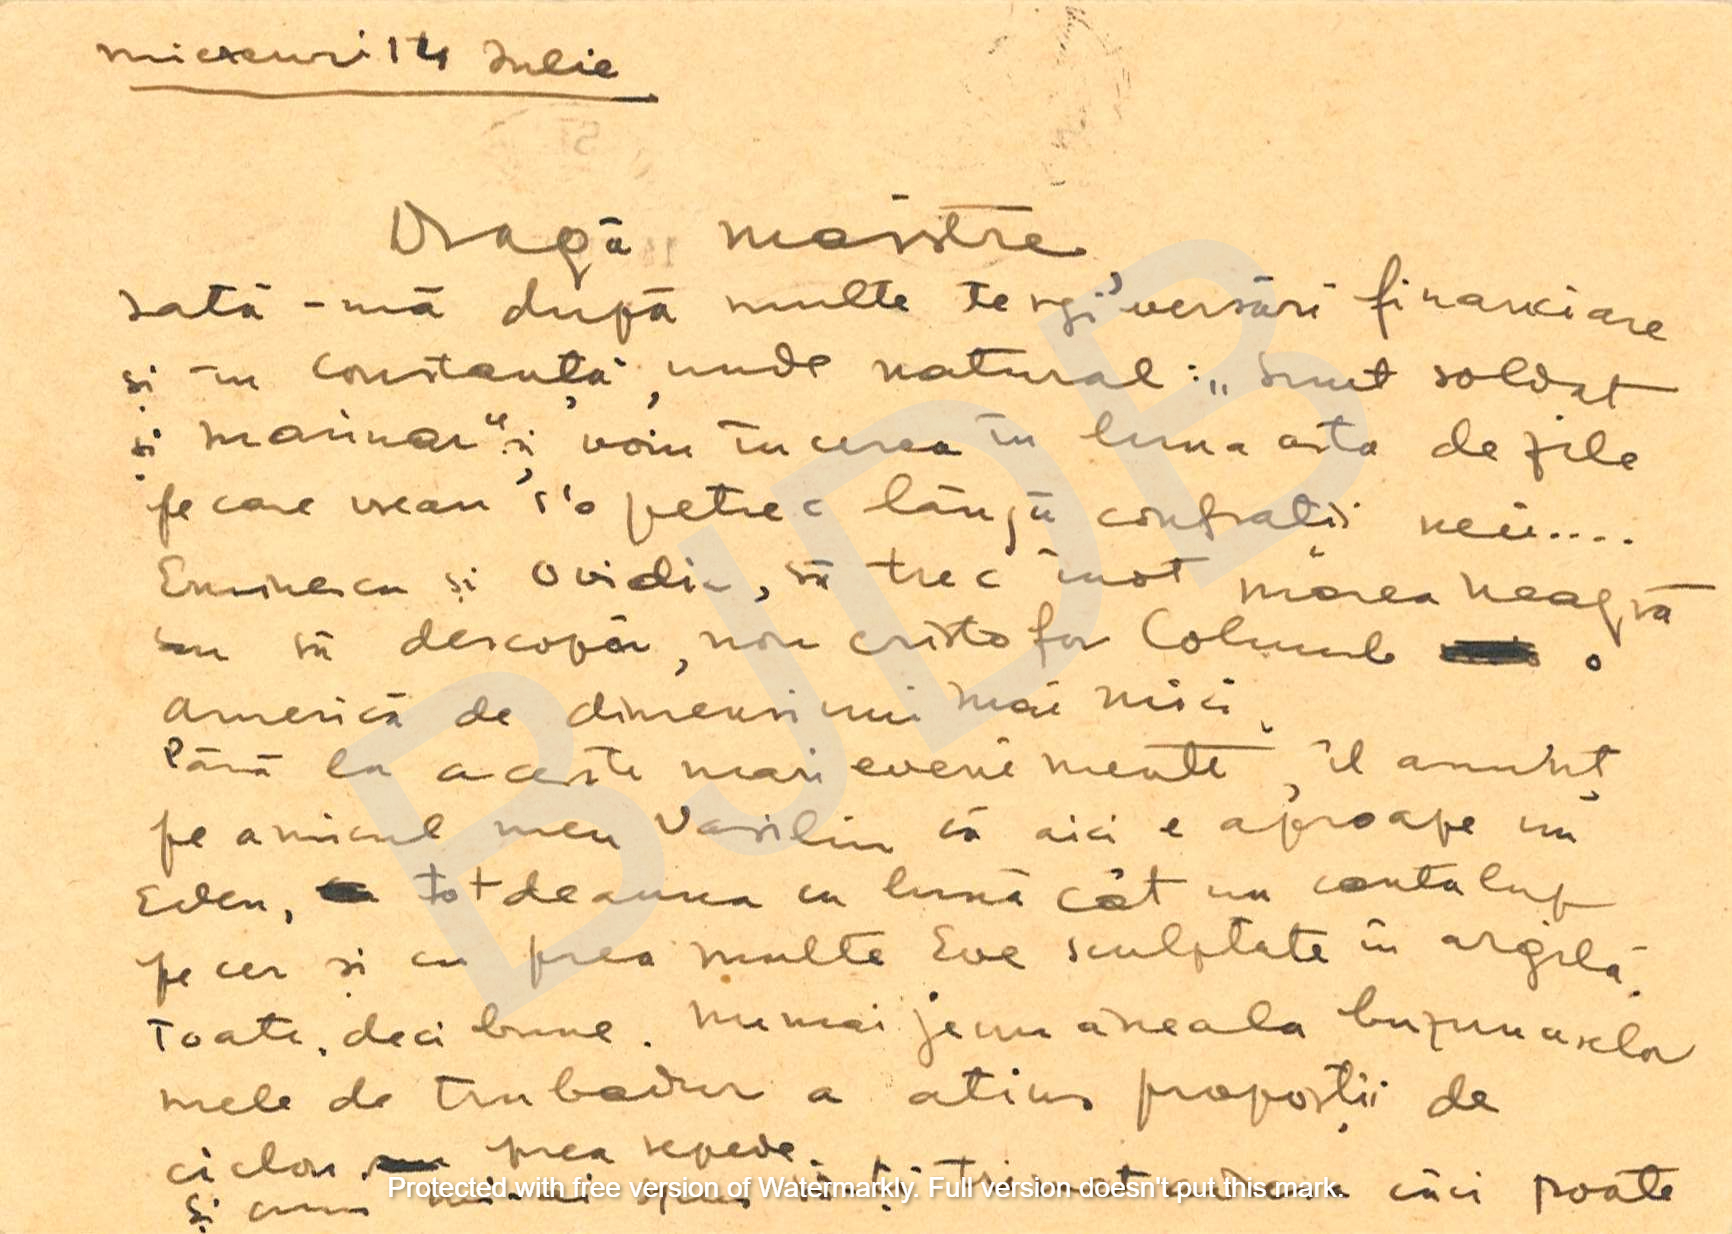 miercuri 14 Iulie
Dragă maistre,
Iată-mă după multe tergiversări financiare
și în Constanța, unde natural: „Sunt soldat
și marinar" și voiu încerca în luna asta de zile
pe care vreau s'o petrec lângă confrații mei....
Eminescu și Ovidiu, să trec înot marea neagră
sau să descopăr, nou cristofor Columb o
Americă de dimensiuni mai mici.
Până la aceste mari evenimente, îl anunț
pe amicul meu Vasiliu că aici e aproape un
Eden, totdeauna cu lună cât un cantalup
pe cer și cu prea multe Eve sculptate în argilă.
Toate, deci bune. Numai jemăneala buzunarelor
mele de trubadur a atins proporții de
ciclon prea repede.
Și cum căci poate
BJDB
Protected with free version of Watermarkly. Full version doesn't put this mark.